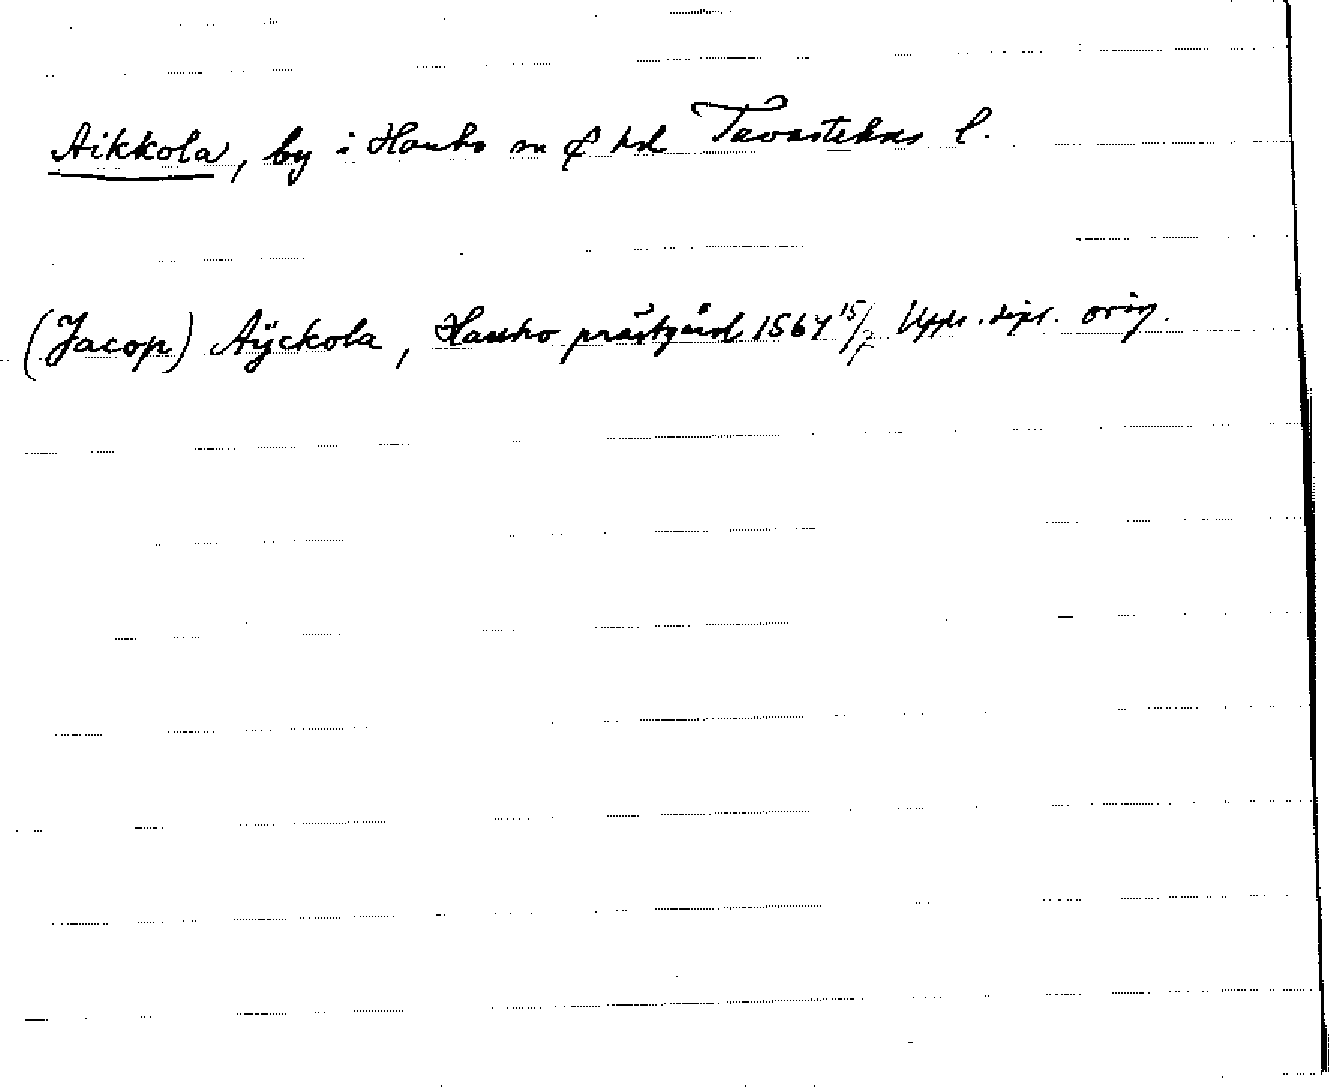 Aikkola, by i Hauho sn & hd Tavastehus l.
(Jacop) Aÿckola, Hauho prästgård 1564 15/7 Upps. dipl. orig.